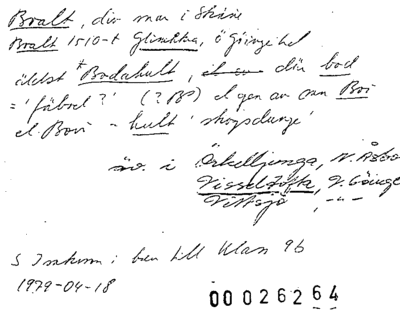 Bralt, där man i Skåne
Bralt 1510-t Glimåkra, Ö Göinge hd
äldst *Bodahult, där bod
= 'fäbod?' (? B°) el gen av mn Boi
el. Bovi - hult 'skogsdunge'
äv. i Örkelljunga, N. Åsbo
Visseltofta, V. Göinge
Vittsjö, -"-
S Isaksson i brev till Klas 9b
1979-04-18
00026264